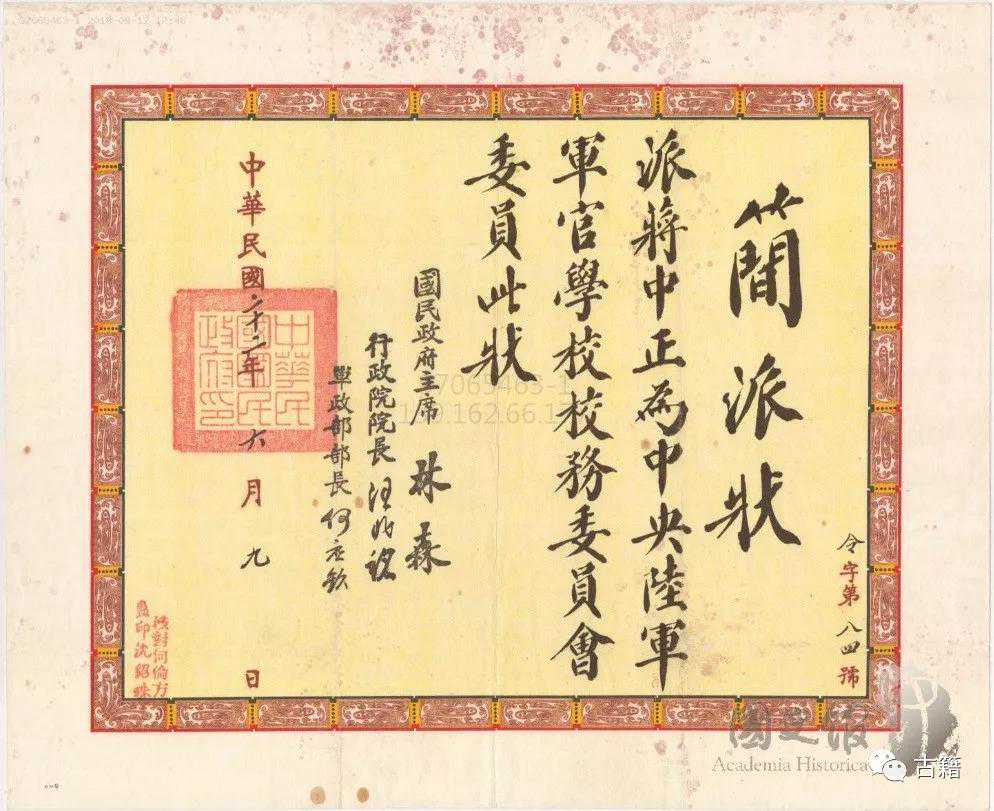 簡派狀
令字第八四號
派蔣中正為中央陸軍
軍官學校校務委員會
委員此狀
國民政府主席 林森
行政院院長 汪兆銘
軍政部部長 何應欽
中華民國二十三年六月九日
中華民
國國民
政府印
校對何倫方
監印沈紹
國史館
Academia Historica
古籍